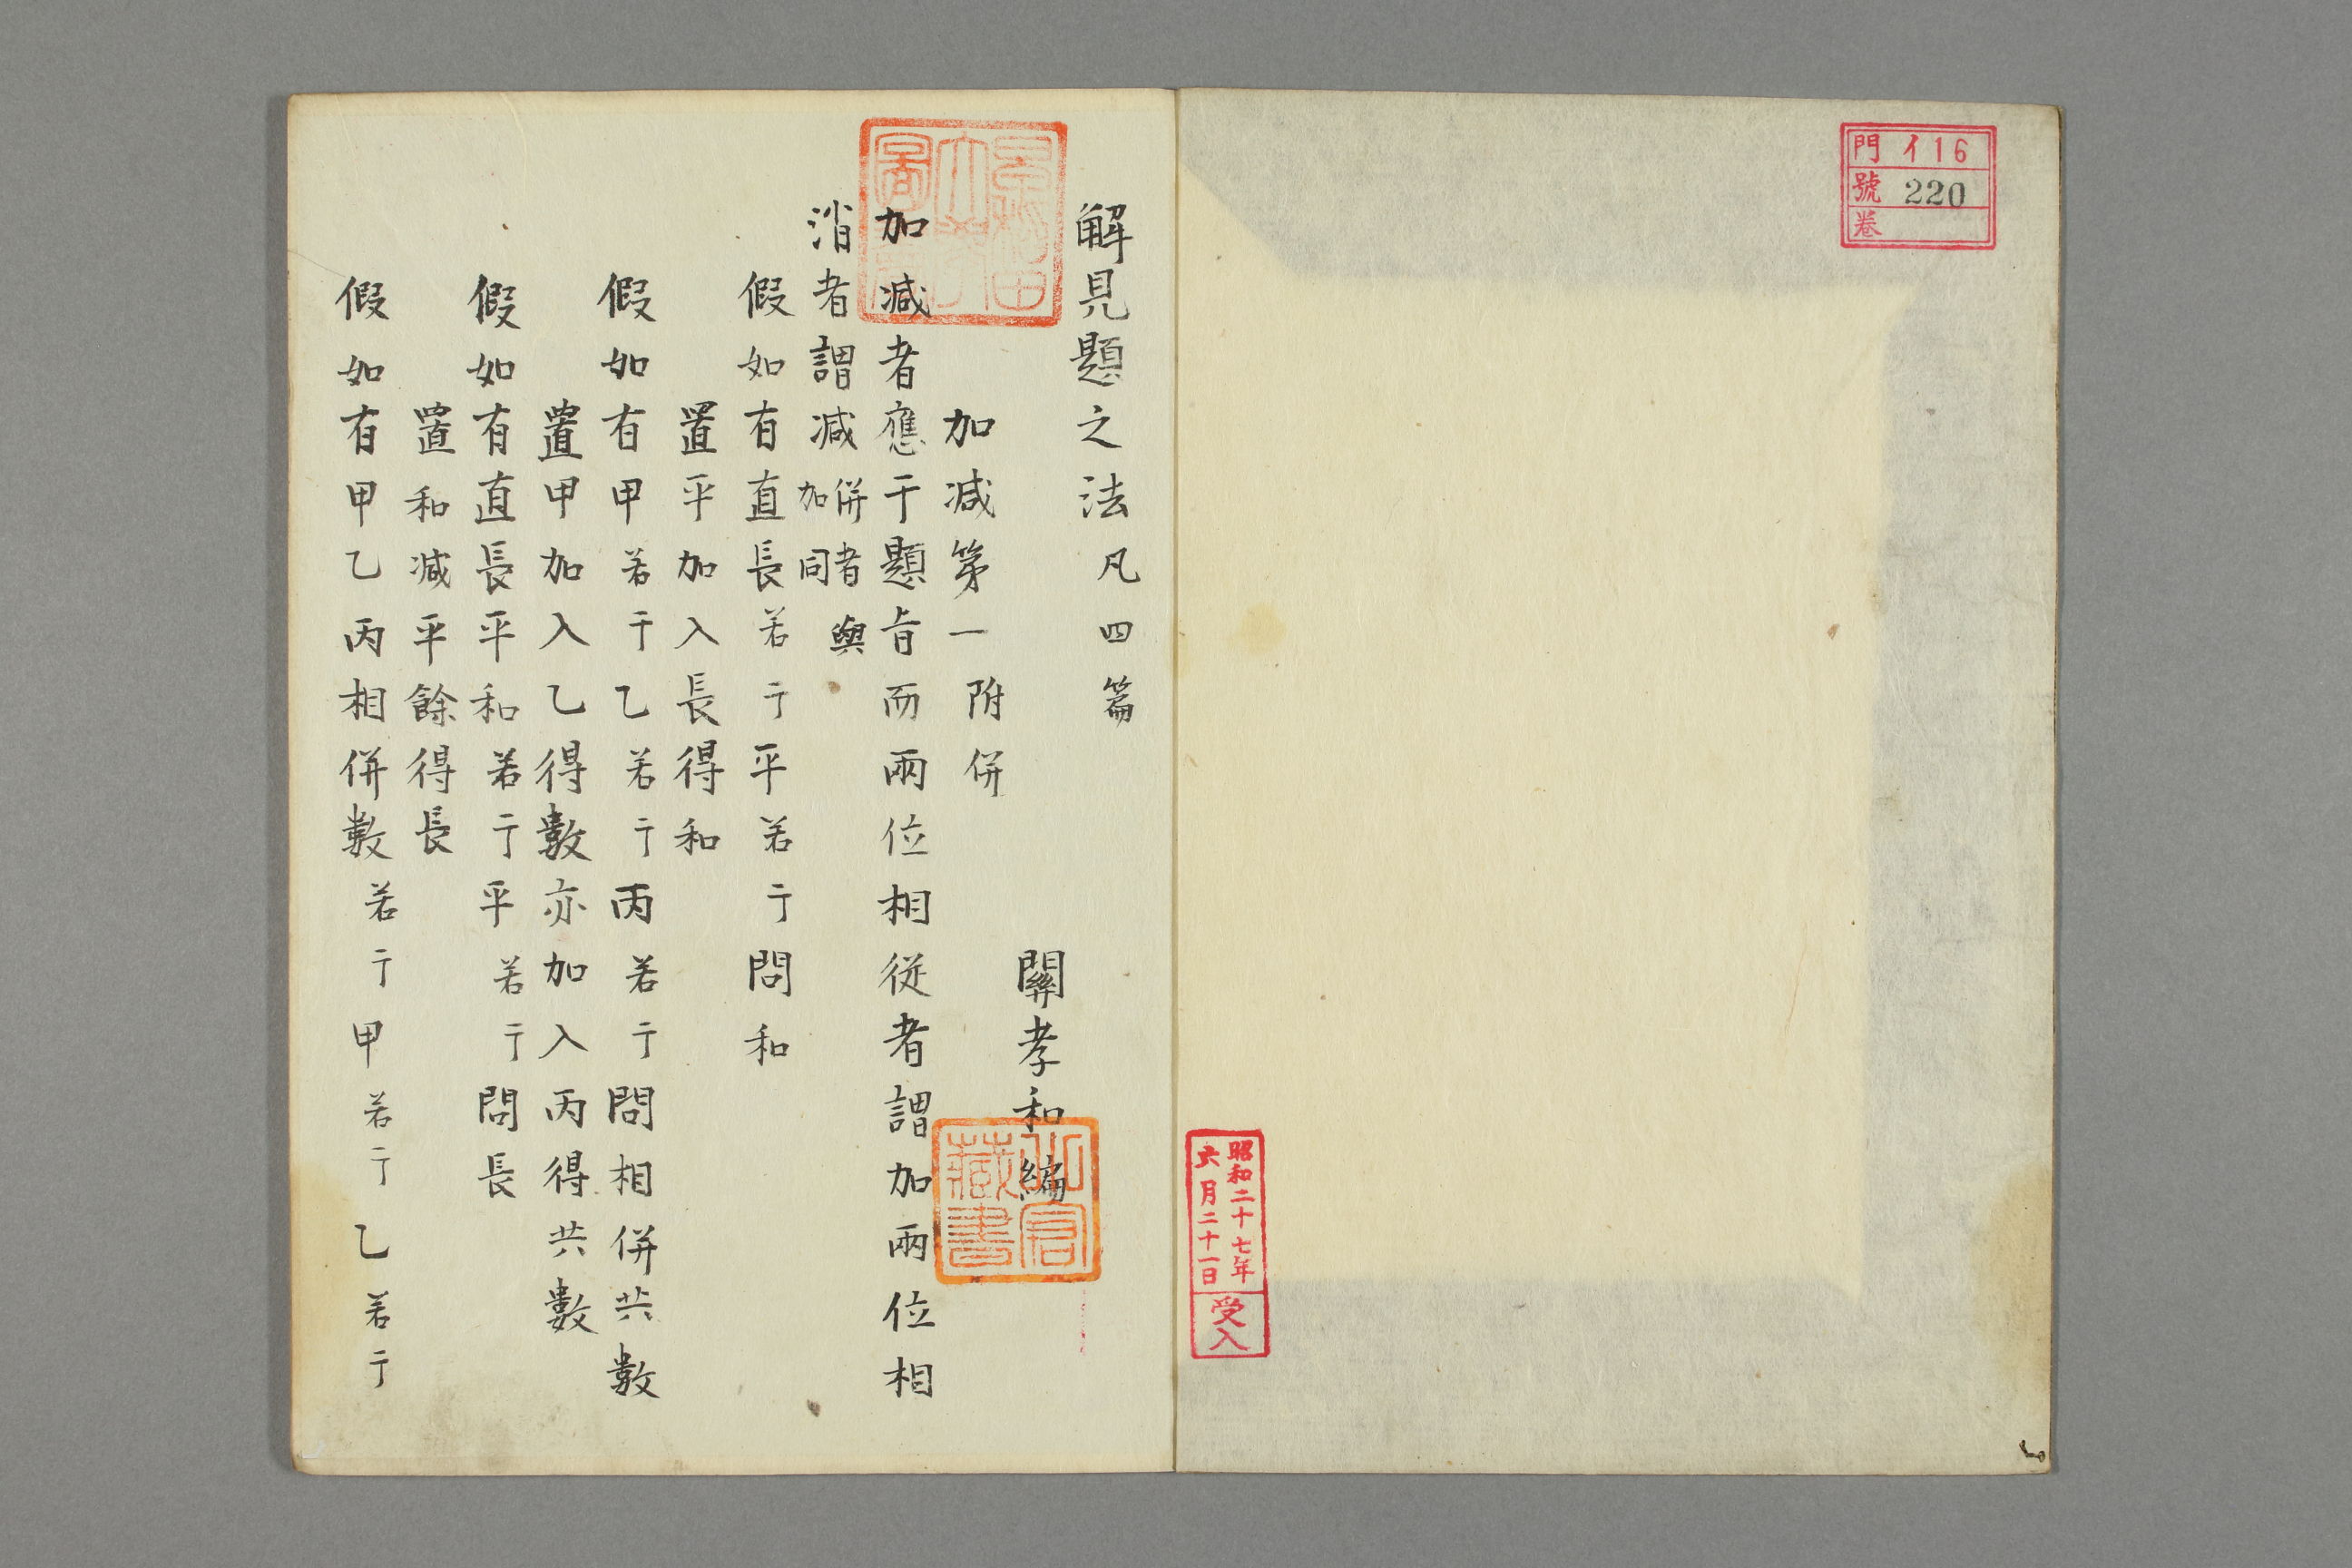 門 イ16
號 220
卷
昭和二十七年
六月二十一日
受入
解見題之法凡四篇
關孝和編
加減第一附併
加減者應于題旨而兩位相從者謂加兩位相
消者謂減併者與加同
假如有直長若干平若干問和
置平加入長得和
假如有甲若干乙若干丙若干問相併共數
置甲加入乙得數亦加入丙得共數
假如有直長平和若干平若干問長
置和減平餘得長
假如有甲乙丙相併數若干甲若干乙若干
藏書